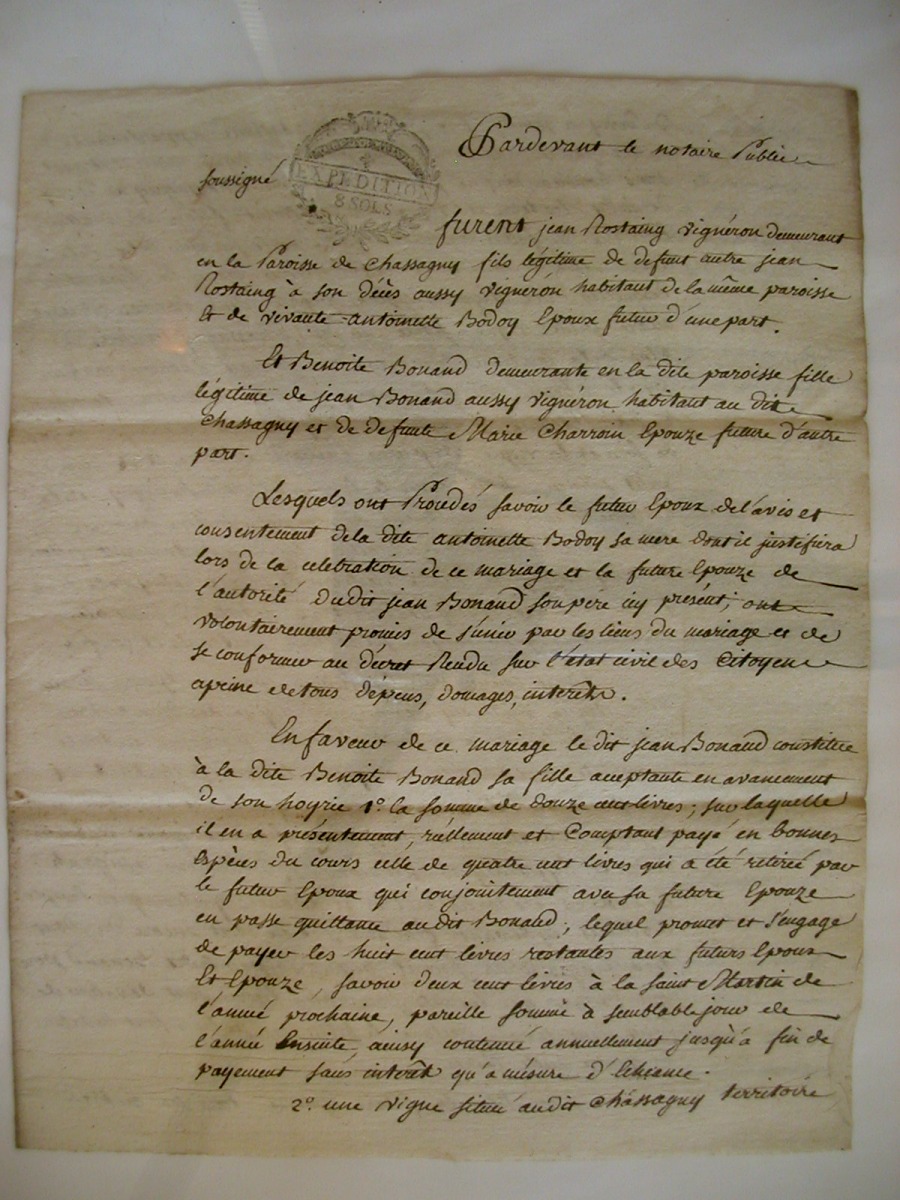 Pardevant le notaire Public
soussigné
EXPEDITION
8 SOLS
furent jean Rostaing vignéron demeurant
en la Paroisse de Chassagny fils légitime de defunt autre jean
Rostaing à son décès aussy vignéron habitant de la même paroisse
Et de vivante antoinette Bodoy Epoux futur d'une part.
Et Benoite Bonand demeurante en la dite paroisse fille
légitime de jean Bonand aussy vignéron habitant au dit
Chassagny et de defunte Marie Charroin Epouze future d'autre
part.
Lesquels ont Procédés savoir le futur Epoux de l'avis et
consentement de la dite antoinette Bodoy sa mere dont il justifira
lors de la celebration de ce mariage et la future Epouze de
l'autorité dudit jean Bonand son père icy présent; ont
volontairement promis de s'unir par les liens du mariage et de
se conformer au décret Rendu sur l'état civil des Citoyens
apeine de tous dépens, domages, interêts.
En faveur de ce mariage le dit jean Bonand constitue
à la dite Benoite Bonand sa fille aceptante en avancement
de son hoyrie 1º. la somme de douze cent livres; sur laquelle
il en a présentement, réellement et Comptant payé en bonnes
Espèces du cours celle de quatre cent livres qui a été retirée par
le futur Epoux qui conjointement avec sa future Epouze
en passe quittance audit Bonand; lequel promet et s'engage
de payer les huit cent livres restantes aux futurs Epoux
Et Epouze, savoir deux cent livres à la saint Martin de
l'année prochaine, pareille somme à semblable jour de
l'année Ensuite, ainsy continué annuellement jusqu'à fin de
payement sans interêt qu'a mésure d'Echéance.
2º. une vigne située audit Chassagny territoire